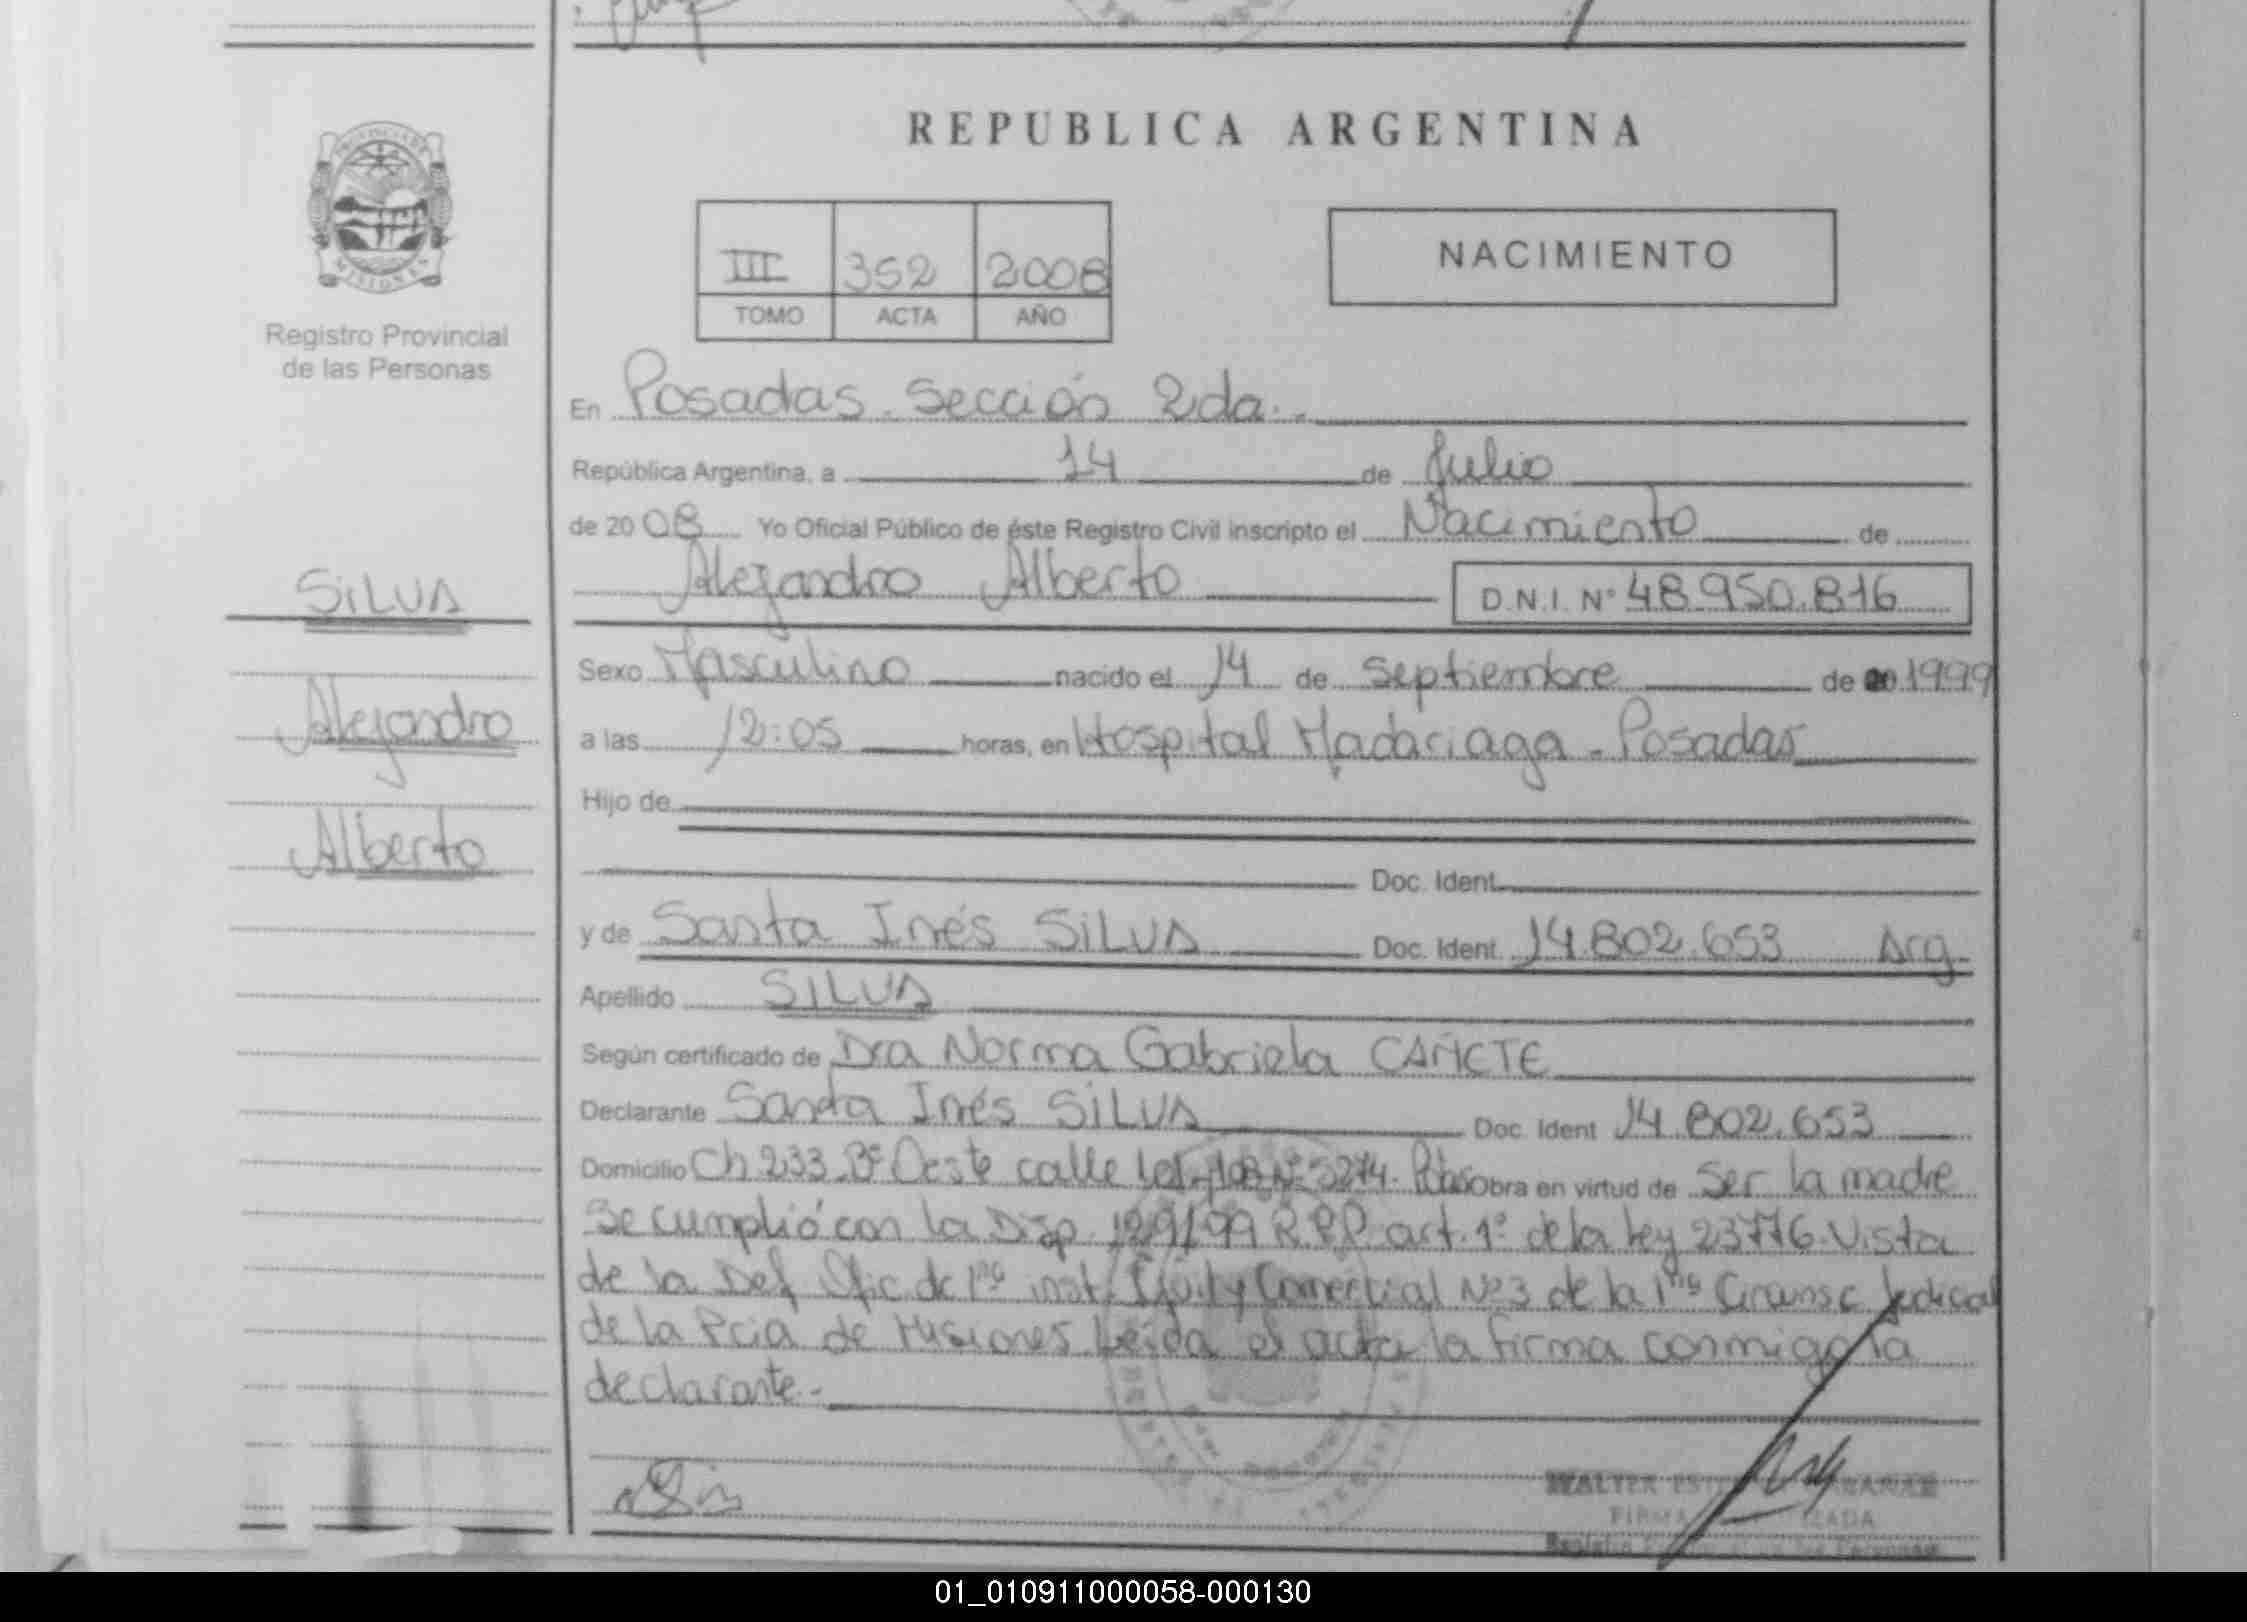 REPUBLICA ARGENTINA
PROVINCIA DE
MISIONES
Registro Provincial
de las Personas
III 352 2008
TOMO ACTA AÑO
NACIMIENTO
En Posadas. Sección 2da.
República Argentina, a 14 de Julio
de 2008 Yo Oficial Público de éste Registro Civil inscripto el Nacimiento de
Alejandro Alberto D.N.I. Nº 48.950.816
SILVA
Alejandro
Alberto
Sexo Masculino nacido el 14 de Septiembre de 1999
a las 12:05 horas, en Hospital Madariaga - Posadas
Hijo de
Doc. Ident.
y de Santa Inés SILVA Doc. Ident. 14.802.653 Arg.
Apellido SILVA
Según certificado de Dra Norma Gabriela CAÑETE
Declarante Santa Inés SILVA Doc. Ident 14.802.653
Domicilio Ch. 233. Bº Oeste calle Nº 3274. Obra en virtud de ser la madre
Se cumplió con la Disp. 129/99 R.P.P. art. 1º de la ley 23776. Vista
de la Def. Ofic. de 1ra inst. Civil y Comercial Nº 3 de la 1ra Circunsc Judicial
de la Pcia de Misiones Leída el acta la firma conmigo la
declarante.-
WALTER
FIRMA
Personas
01_010911000058-000130